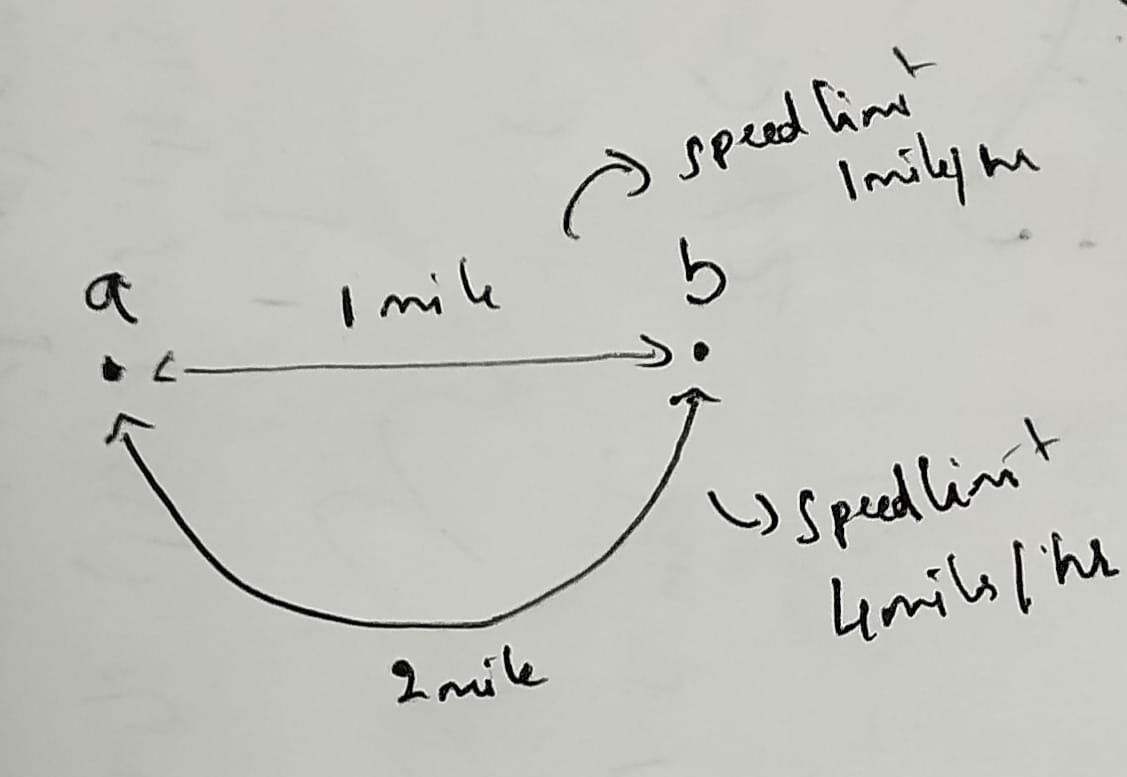 speed limit
1 mile/hr
a
b
1 mile
speed limit
4 miles/hr
2 mile